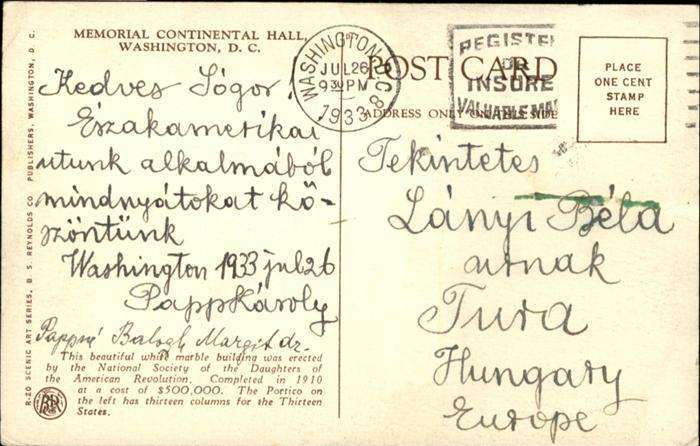 MEMORIAL CONTINENTAL HALL,
WASHINGTON, D. C.
Kedves Sógor!
Északamerikai
utunk alkalmából
mindnyátokat kö-
szöntünk
Washington 1933 jul 26
Papp Károly
Pappné Balogh Margit dr.
This beautiful white marble building was erected
by the National Society of the Daughters of
the American Revolution. Completed in 1910
at a cost of $500,000. The Portico on
the left has thirteen columns for the Thirteen
States.
R-20 SCENIC ART SERIES, B. S. REYNOLDS CO. PUBLISHERS, WASHINGTON, D. C.
WASHINGTON, D.C.
JUL 26
9 30 PM
1933
8
REGISTER
OR
INSURE
VALUABLE MAIL
POST CARD
ADDRESS ONLY ON THIS SIDE
PLACE
ONE CENT
STAMP
HERE
Tekintetes
Lányi Béla
urnak
Tura
Hungary
Europe